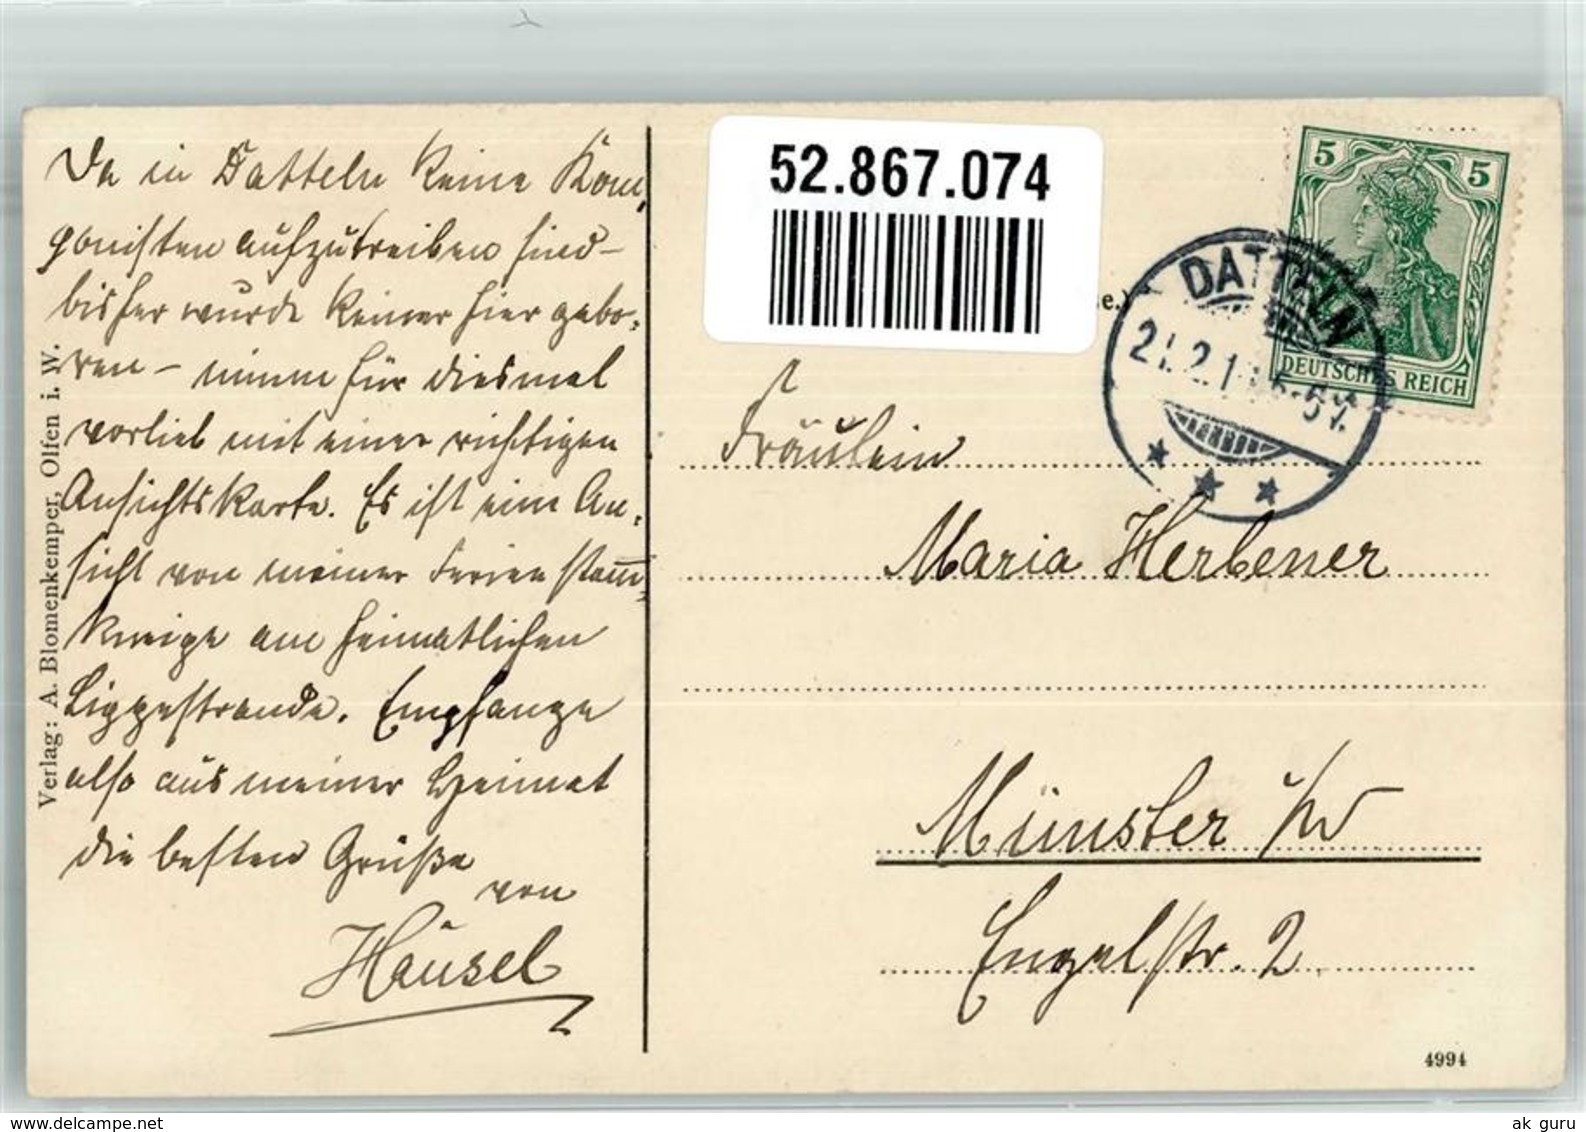 Da in Datteln keine Kom-
ponisten aufzutreiben sind –
bisher wurde keiner hier gebo-
ren – nimm für diesmal
vorlieb mit einer richtigen
Ansichtskarte. Es ist eine An-
sicht von meiner Ferienstamm-
kneipe am heimatlichen
Lippestrande. Empfange
also aus meiner Heimat
die besten Grüße
von
Häusel
Verlag: A. Blomenkemper, Olfen i. W.
52.867.074
e.)
5 5
DEUTSCHES REICH
DATTELN
21.2.1
Fräulein
Maria Herbener
Münster i/W
Engelstr. 2.
4994
ak guru